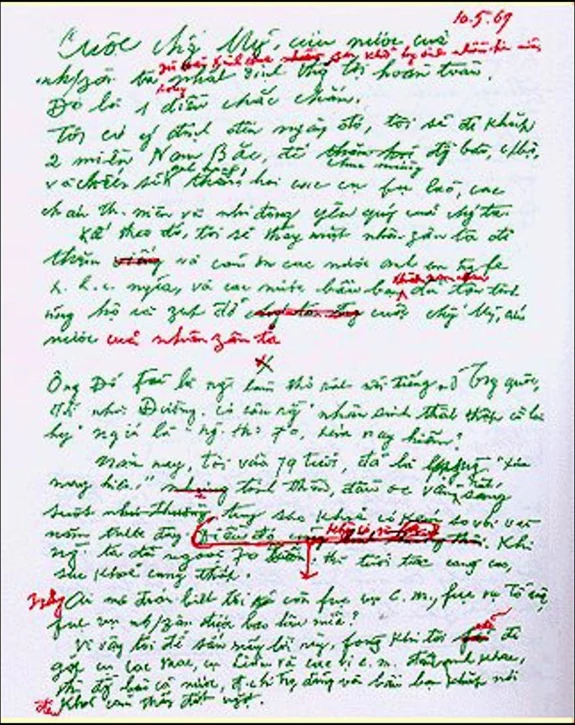 10.5.69
Cuộc chg Mỹ, cứu nước của
zù fải kinh qua nhiều gay khổ hy sinh nhiều hơn nữa
nh/zân ta nhất định thg lợi hoàn toàn.
Đó là 1 điều chắc chắn.
Tôi có ý định đến ngày đó, tôi sẽ đi khắp
2 miền Nam Bắc, để chúc mừng đg bào, ch/bộ,
và chiến sĩ, thăm hỏi các cụ fụ lão, các
cháu th. niên và nhi đồng yêu quý của chg ta.
Kế theo đó, tôi sẽ thay mặt nhân zân ta đi
thăm và cám ơn các nước anh em trg fe
x. h. c. nghĩa, và các nước bầu bạn đã tận tình
ủng hộ và zúp đỡ cuộc chg Mỹ, cứu
nước của nhân zân ta
X
Ông Đỗ Fủ là ng làm thơ rất nổi tiếng ở Trg quốc,
đời nhà Đường. Có câu rằng "nhân sinh thất thập cổ lai
hy" nghĩa là "ng thọ 70, xưa nay hiếm".
Năm nay, tôi vừa 79 tuổi, đã là "xưa
nay hiếm" tinh thần, đầu óc vẫn sáng
suốt tuy sức khoẻ có kém so với vài
năm trước đây. Khi
ng ta đã ngoài 70 xuân, thì tuổi tác càng cao,
sức khoẻ càng thấp.
Nhg Ai mà đoán biết tôi còn fục vụ c. m., fục vụ Tổ quốc,
fục vụ nh/zân được bao lâu nữa?
Vì vậy tôi để sẵn mấy lời này, fòng khi tôi sẽ đi
gặp cụ các Mác, cụ Lênin và các vị c. m. đàn anh khác,
thì đg bào cả nước, đ. chí trg đảng và bầu bạn khắp nơi
đều khỏi cảm thấy đột ngột.